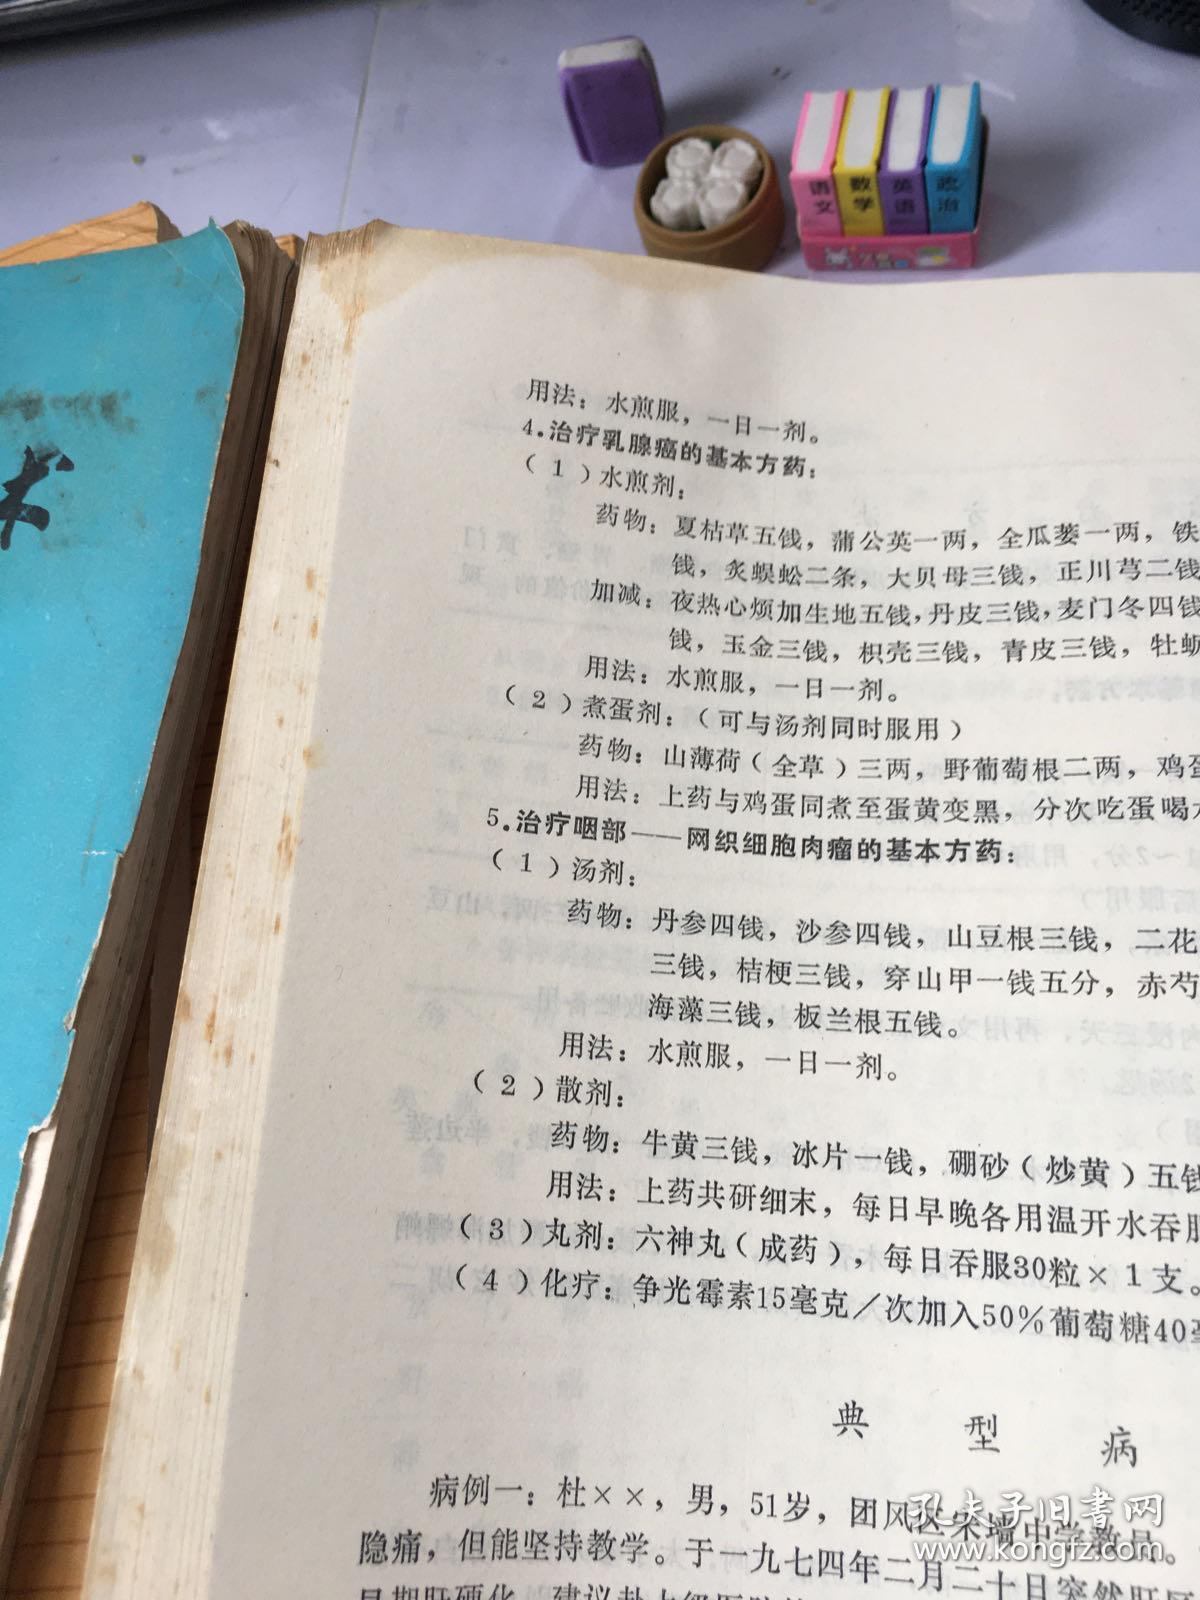 语文
数学
英语
政治
术
用法：水煎服，一日一剂。
4.治疗乳腺癌的基本方药：
（1）水煎剂：
药物：夏枯草五钱，蒲公英一两，全瓜蒌一两，铁
钱，炙蜈蚣二条，大贝母三钱，正川芎二钱
加减：夜热心烦加生地五钱，丹皮三钱，麦门冬四钱
钱，玉金三钱，枳壳三钱，青皮三钱，牡蛎
用法：水煎服，一日一剂。
（2）煮蛋剂：（可与汤剂同时服用）
药物：山薄荷（全草）三两，野葡萄根二两，鸡蛋
用法：上药与鸡蛋同煮至蛋黄变黑，分次吃蛋喝
5.治疗咽部——网织细胞肉瘤的基本方药：
（1）汤剂：
药物：丹参四钱，沙参四钱，山豆根三钱，二花
三钱，桔梗三钱，穿山甲一钱五分，赤芍
海藻三钱，板兰根五钱。
用法：水煎服，一日一剂。
（2）散剂：
药物：牛黄三钱，冰片一钱，硼砂（炒黄）五钱
用法：上药共研细末，每日早晚各用温开水吞服
（3）丸剂：六神丸（成药），每日吞服30粒×1支。
（4）化疗：争光霉素15毫克／次加入50％葡萄糖40毫
典型病
病例一：杜××，男，51岁，团风区宋墙中学教员。
隐痛，但能坚持教学。于一九七四年二月二十日突然肝区
早期肝硬化，建议赴上级医院
孔夫子旧书网
www.kongfz.com